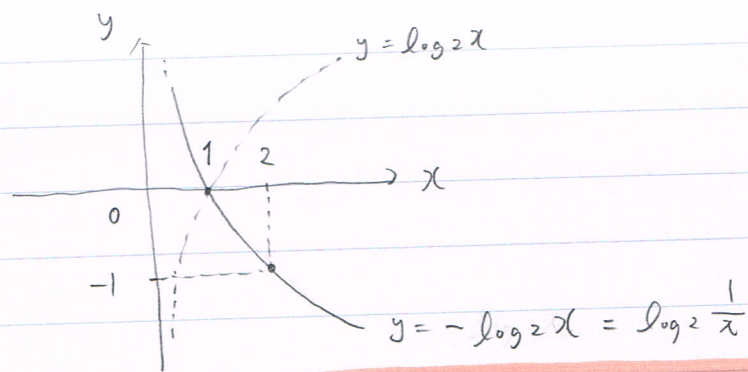 y
y = log₂x
1
2
x
0
-1
y = - log₂x = log₂ 1/x